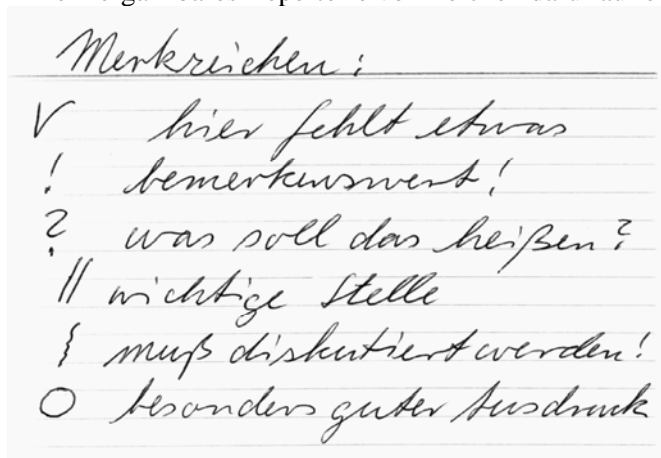 Merkzeichen:
V hier fehlt etwas
! bemerkenswert!
? was soll das heißen?
|| wichtige Stelle
{ muß diskutiert werden!
O besonders guter Ausdruck